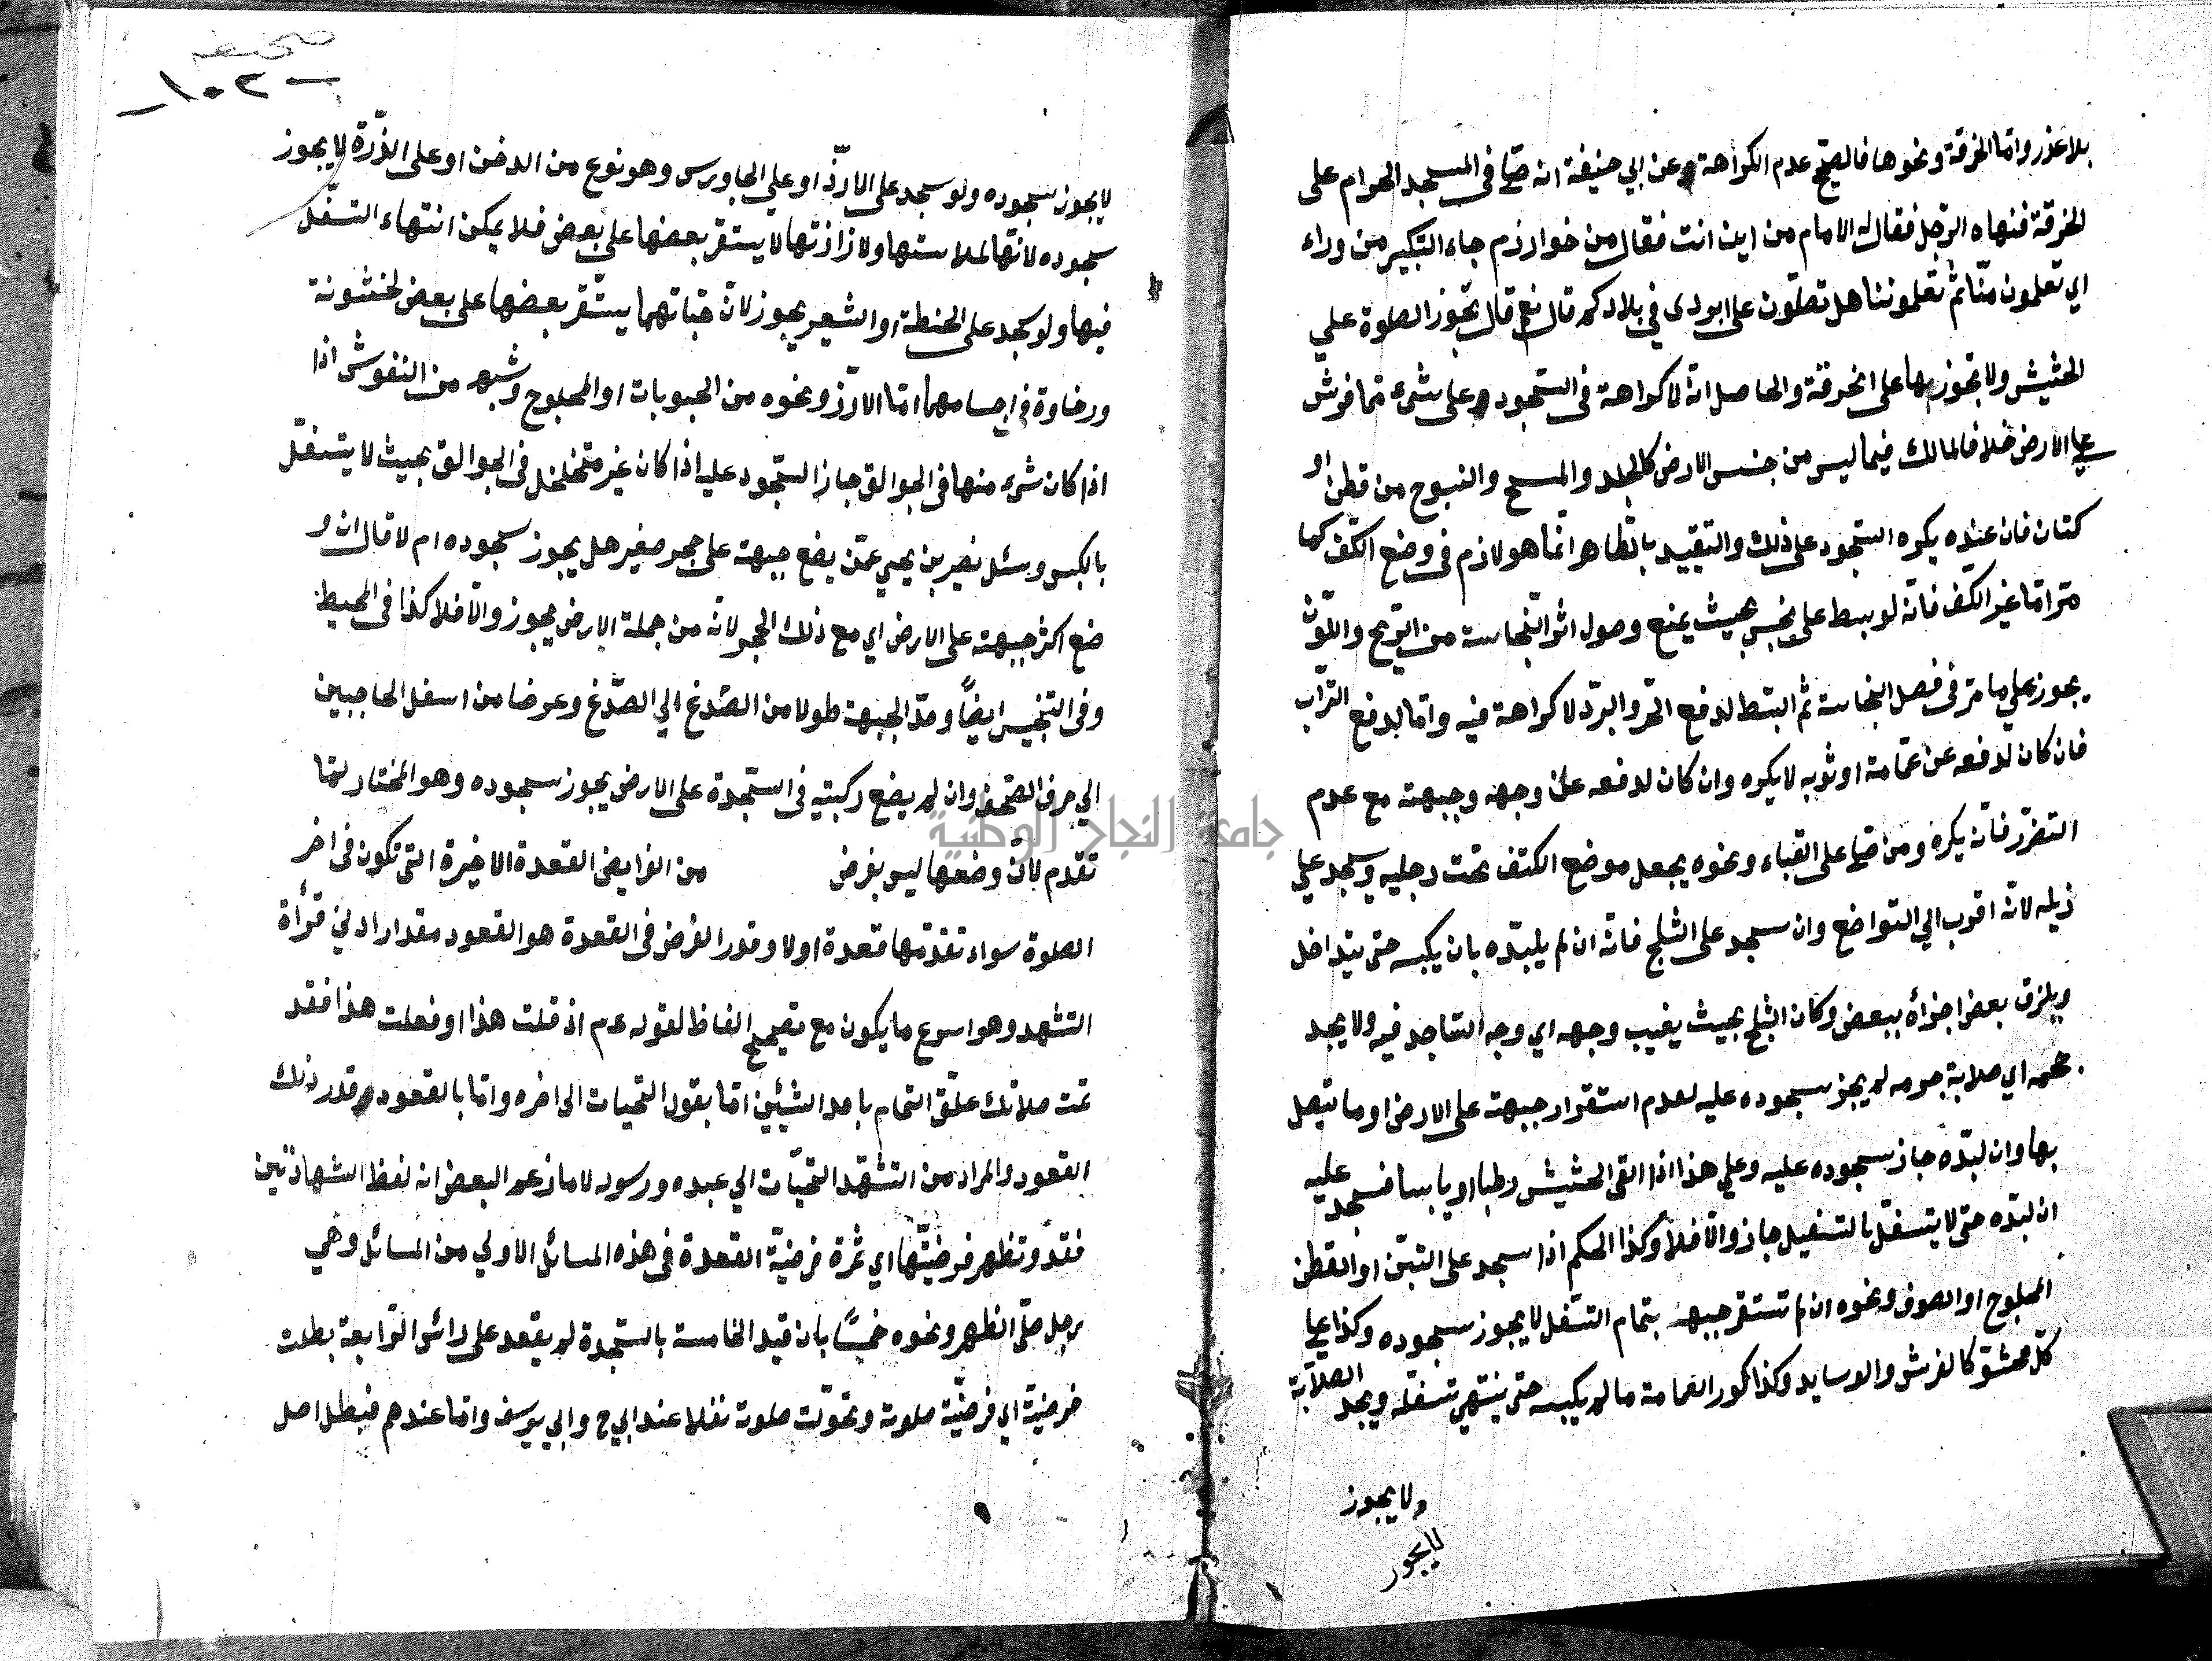 بلا عذر وامّا الخرقة ونحوها فالصحيح عدم الكراهة وعن ابي حنيفة انه صلّى في المسجد الحرام على
الخرقة فنهاه الرّجل فقال له الامام من اين انت فقال من خوارزم جاء التكبير من وراء
اي تعلمون منّا ثم تعلموننا هل تصلّون على البوردى في بلادكم قال نعم قال تجوز الصلوة على
الحشيش ولا تجوزها على الخرقة والحاصل انّه لا كراهة في السّجود على شىء ممّا فرش
على الارض خلافا لمالك فيما ليس من جنس الارض كالجلد والمسح والنسوج من قطن او
كتان فان عنده يكره السّجود على ذلك والتقييد بالطاهر انّما هو لازم في وضع الكفّ كما
مرّ امّا غير الكفّ فانّه لو بسط على نجس بحيث يمنع وصول اثر النّجاسة من الرّيح واللّون
يجوز على ما مرّ في فصل النجاسة ثم البسط لدفع الحرّ والبرد لا كراهة فيه وامّا لدفع التراب
فان كان لدفعه عن عمامة او ثوبه لا يكره وان كان لدفعه عن وجهه وجبهته مع عدم
التضرّر فانّه يكره ومن صلّى على القباء ونحوه يجعل موضع الكتف تحت رجليه وسجد على
ذيله لانّه اقرب الي التواضع وان سجد على الثلج فانّه ان لم يلبّده بان يكبسه حتى يتداخل
ويلزق بعض اجزأه ببعض وكان الثلج بحيث يغيب وجهه اي وجه السّاجد فيه ولا يجد
حجمه اي صلابة جرمه لم يجز سجوده عليه لعدم استقرار جبهته على الارض او ما يتصل
بها وان لبّده جاز سجوده عليه وعلي هذا اذا القى الحشيش رطبا او يابسا فسجد عليه
ان لبّده حتى لا يتسفّل بالتسفيل جاز والّا فلا وكذا الحكم اذا سجد على التبن او القطن
المحلوج او الصوف ونحوه ان لم تستقر جبهته بتمام التسفّل لا يجوز سجوده وكذا على
كلّ محشوّ كالفرش والوسايد وكذا كور العمامة ما لم يكبسه حتى ينتهي تسفّله ويجد الصلابة
ولا يجوز
لا يجوز
صحيفه
-١٠٢-
لا يجوز سجوده ولو سجد على الارذّ او علي الجاورس وهو نوع من الدخن او على الذّرة لا يجوز
سجوده لانّها لملاستها ولازازتها لا يستقر بعضها على بعض فلا يمكن انتهاء التسفّل
فيها ولو سجد على الحنطة او الشعير يجوز لانّ حبّاتهما يستّقر بعضها على بعض لخشونة
ورخاوة في اجسامهما امّا الارّز ونحوه من الحبوبات او المحلوج وشبهه من النفوش اذا
اذا كان شىء منها في الجوالق جاز السّجود عليه اذا كان غير متخلخل في الجوالق بحيث لا يتسفّل
بالكبس وسئل نصير بن يحيي عمّن يضع جبهته على حجر صغير هل يجوز سجوده ام لا قال ان و
ضع اكثر جبهته على الارض اي مع ذلك الحجر لانّه من جملة الارض يجوز والّا فلا كذا في المحيط
وفي التجنيس ايضًا وحدّ الجبهة طولا من الصّدغ الي الصّدغ وعرضا من اسفل الحاجبين
الي حرف القحف وان لم يضع ركبتيه في السّجدة على الارض يجوز سجوده وهو المختار لمّا
تقدم لانّ وضعها ليس بفرض من الفرايض القعدة الاخيرة التى تكون في اخر
الصلوة سواء تقدّمها قعدة اولا وقدر الفرض في القعدة هو القعود مقدار ادني قرأة
التشهد وهو اسرع ما يكون مع تصحيح الفاظ لقوله عم اذ قلت هذا او فعلت هذا فقد
تمت صلاتك علّق التمام باحد الشيئين امّا بقول التحيات الى اخره وامّا بالقعود وقدر ذلك
القعود والمراد من التشهّد التحيّات الي عبده ورسوله لا ما زعم البعض انه لفظ الشهادتين
فقد وتظهر فرضيّتها اي ثمرة فرضيّة القعدة في هذه المسائل الاولي من المسائل وهي
رجل صلّى الظهر ونحوه خمسًا بان قيد الخامسة بالسّجدة لم يقعد على رائس الرّابعة بطلت
فرضيّة اي فرضيّة صلوته وتحوّلت صلوته نفلا عند ابي ح وابي يوسف وامّا عندهم فبطل اصل
جامعة النجاح الوطنية